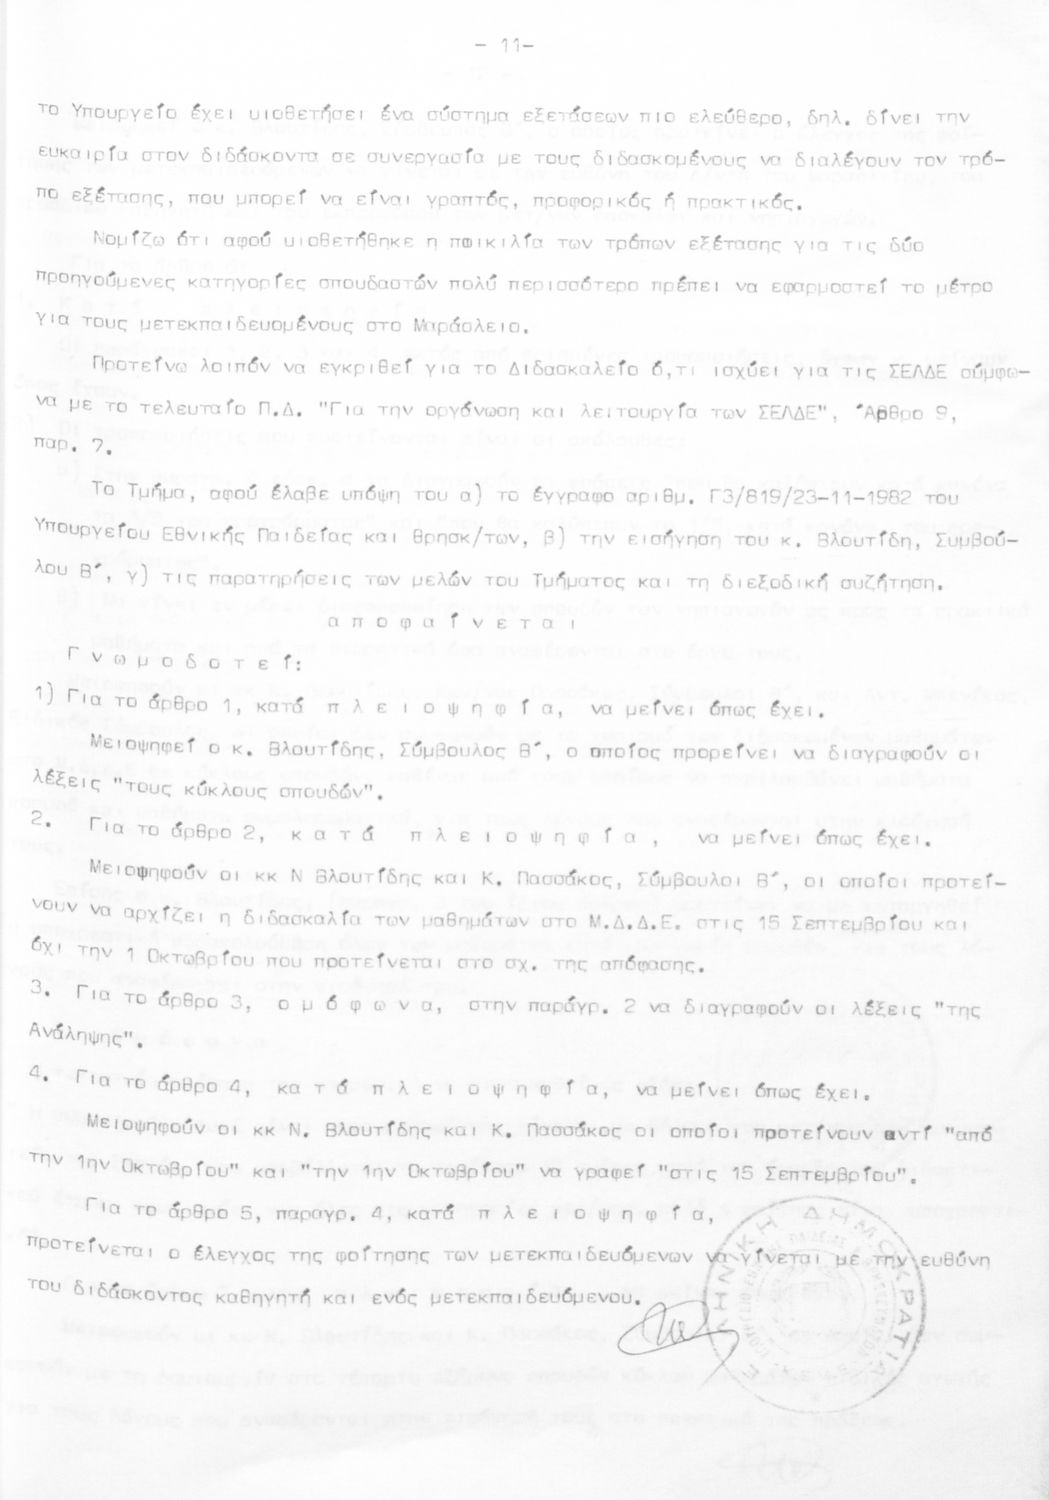 - 11-
το Υπουργείο έχει υιοθετήσει ένα σύστημα εξετάσεων πιο ελεύθερο, δηλ. δίνει την
ευκαιρία στον διδάσκοντα σε συνεργασία με τους διδασκομένους να διαλέγουν τον τρό-
πο εξέτασης, που μπορεί να είναι γραπτός, προφορικός ή πρακτικός.
Νομίζω ότι αφού υιοθετήθηκε η ποικιλία των τρόπων εξέτασης για τις δύο
προηγούμενες κατηγορίες σπουδαστών πολύ περισσότερο πρέπει να εφαρμοστεί το μέτρο
για τους μετεκπαιδευομένους στο Μαράσλειο.
Προτείνω λοιπόν να εγκριθεί για το Διδασκαλείο ό,τι ισχύει για τις ΣΕΛΔΕ σύμφω-
να με το τελευταίο Π.Δ. "Για την οργάνωση και λειτουργία των ΣΕΛΔΕ", Άρθρο 9,
παρ. 7.
Το Τμήμα, αφού έλαβε υπόψη του α) το έγγραφο αριθμ. Γ3/819/23-11-1982 του
Υπουργείου Εθνικής Παιδείας και Θρησκ/των, β) την εισήγηση του κ. Βλουτίδη, Συμβού-
λου Β΄, γ) τις παρατηρήσεις των μελών του Τμήματος και τη διεξοδική συζήτηση.
α π ο φ α ί ν ε τ α ι
Γ ν ω μ ο δ ο τ ε ί:
1) Για το άρθρο 1, κατά π λ ε ι ο ψ η φ ί α, να μείνει όπως έχει.
Μειοψηφεί ο κ. Βλουτίδης, Σύμβουλος Β΄, ο οποίος προρείνει να διαγραφούν οι
λέξεις "τους κύκλους σπουδών".
2. Για το άρθρο 2, κ α τ ά π λ ε ι ο ψ η φ ί α , να μείνει όπως έχει.
Μειοψηφούν οι κκ Ν Βλουτίδης και Κ. Πασσάκος, Σύμβουλοι Β΄, οι οποίοι προτεί-
νουν να αρχίζει η διδασκαλία των μαθημάτων στο Μ.Δ.Δ.Ε. στις 15 Σεπτεμβρίου και
όχι την 1 Οκτωβρίου που προτείνεται στο σχ. της απόφασης.
3. Για το άρθρο 3, ο μ ό φ ω ν α, στην παράγρ. 2 να διαγραφούν οι λέξεις "της
Ανάληψης".
4. Για το άρθρο 4, κα τ ά π λ ε ι ο ψ η φ ί α, να μείνει όπως έχει.
Μειοψηφούν οι κκ Ν. Βλουτίδης και Κ. Πασσάκος οι οποίοι προτείνουν αντί "από
την 1ην Οκτωβρίου" και "την 1ην Οκτωβρίου" να γραφεί "στις 15 Σεπτεμβρίου".
Για το άρθρο 5, παραγρ. 4, κατά π λ ε ι ο ψ η φ ί α,
προτείνεται ο έλεγχος της φοίτησης των μετεκπαιδευόμενων να γίνεται με την ευθύνη
του διδάσκοντος καθηγητή και ενός μετεκπαιδευόμενου.
ΕΛΛΗΝΙΚΗ ΔΗΜΟΚΡΑΤΙΑ